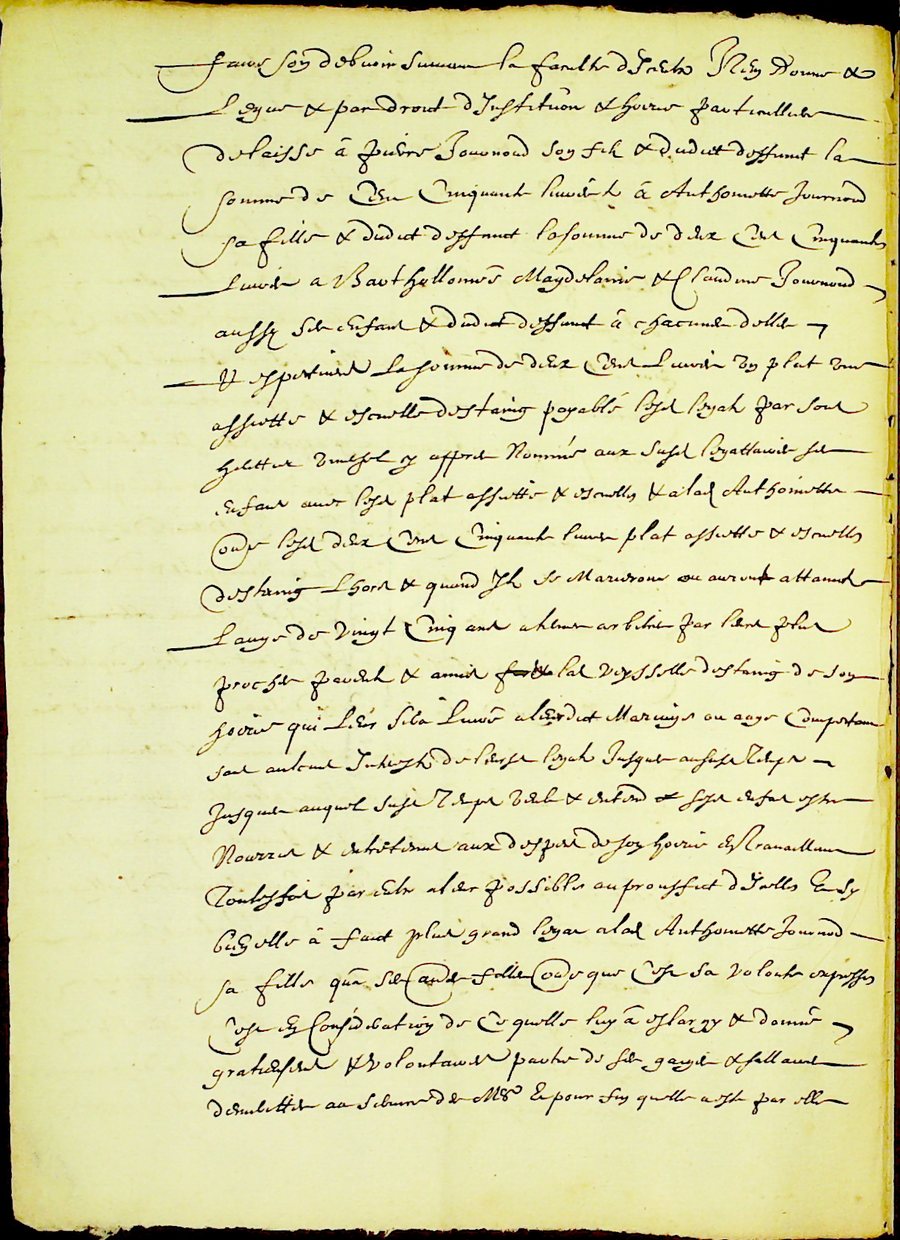 faire son debvoir suivant la faculté d'Icelle Item donne &
Legue & par droict d'Institution & hoirie particulliere
delaisse à pierre Journoud son filz & dudict deffunct la
somme de Cent Cinquante livres & à Anthoinette Journoud
sa fille & dudict deffunct la somme de deux Cent Cinquante
Livres a Barthellomie Magdelaine & Claudine Journoud
aussy ses enfans & dudict deffunct à chacune d'elles
la somme de deux Cent Livres Un plat une
assiette & escuelle destaing payable lesd legatz par son
heritier universel cy appres Nommé aux susd legattaires ses
enfans avec lesd plat assiette & escuelle & à lad Anthoinette
lesd deux Cent Cinquante livres plat assiette & escuelle
destaing Lhors & quand Ilz se Marieront ou auront attainct
Laage de vingt Cinq ans par leurs plus
proches parentz & amis lad veysselle destaing de son
hoirie qui Leur sera Livré a leurdict Mariage ou aage Competant
sans aulcuns Interestz de leursd legatz Jusques aususd temps
Jusques auquel susd temps veult & entend sesd enfans estre
Nourris & entretenus aux despens de son hoirie En travaillant
Touteffois par eulx a leur possible au prouffict d'Icelle Et sy
bien elle à faict plus grand legat a lad Anthoinette Journoud
sa fille qu'à ses filles que C'est sa volonté expresse
C'est en Considération de Ce quelle luy à eslargy & donné
gratuitement & volontairement partie de ses gages & sallaires
au service de Mrs Et pour fin quelle aist par elle